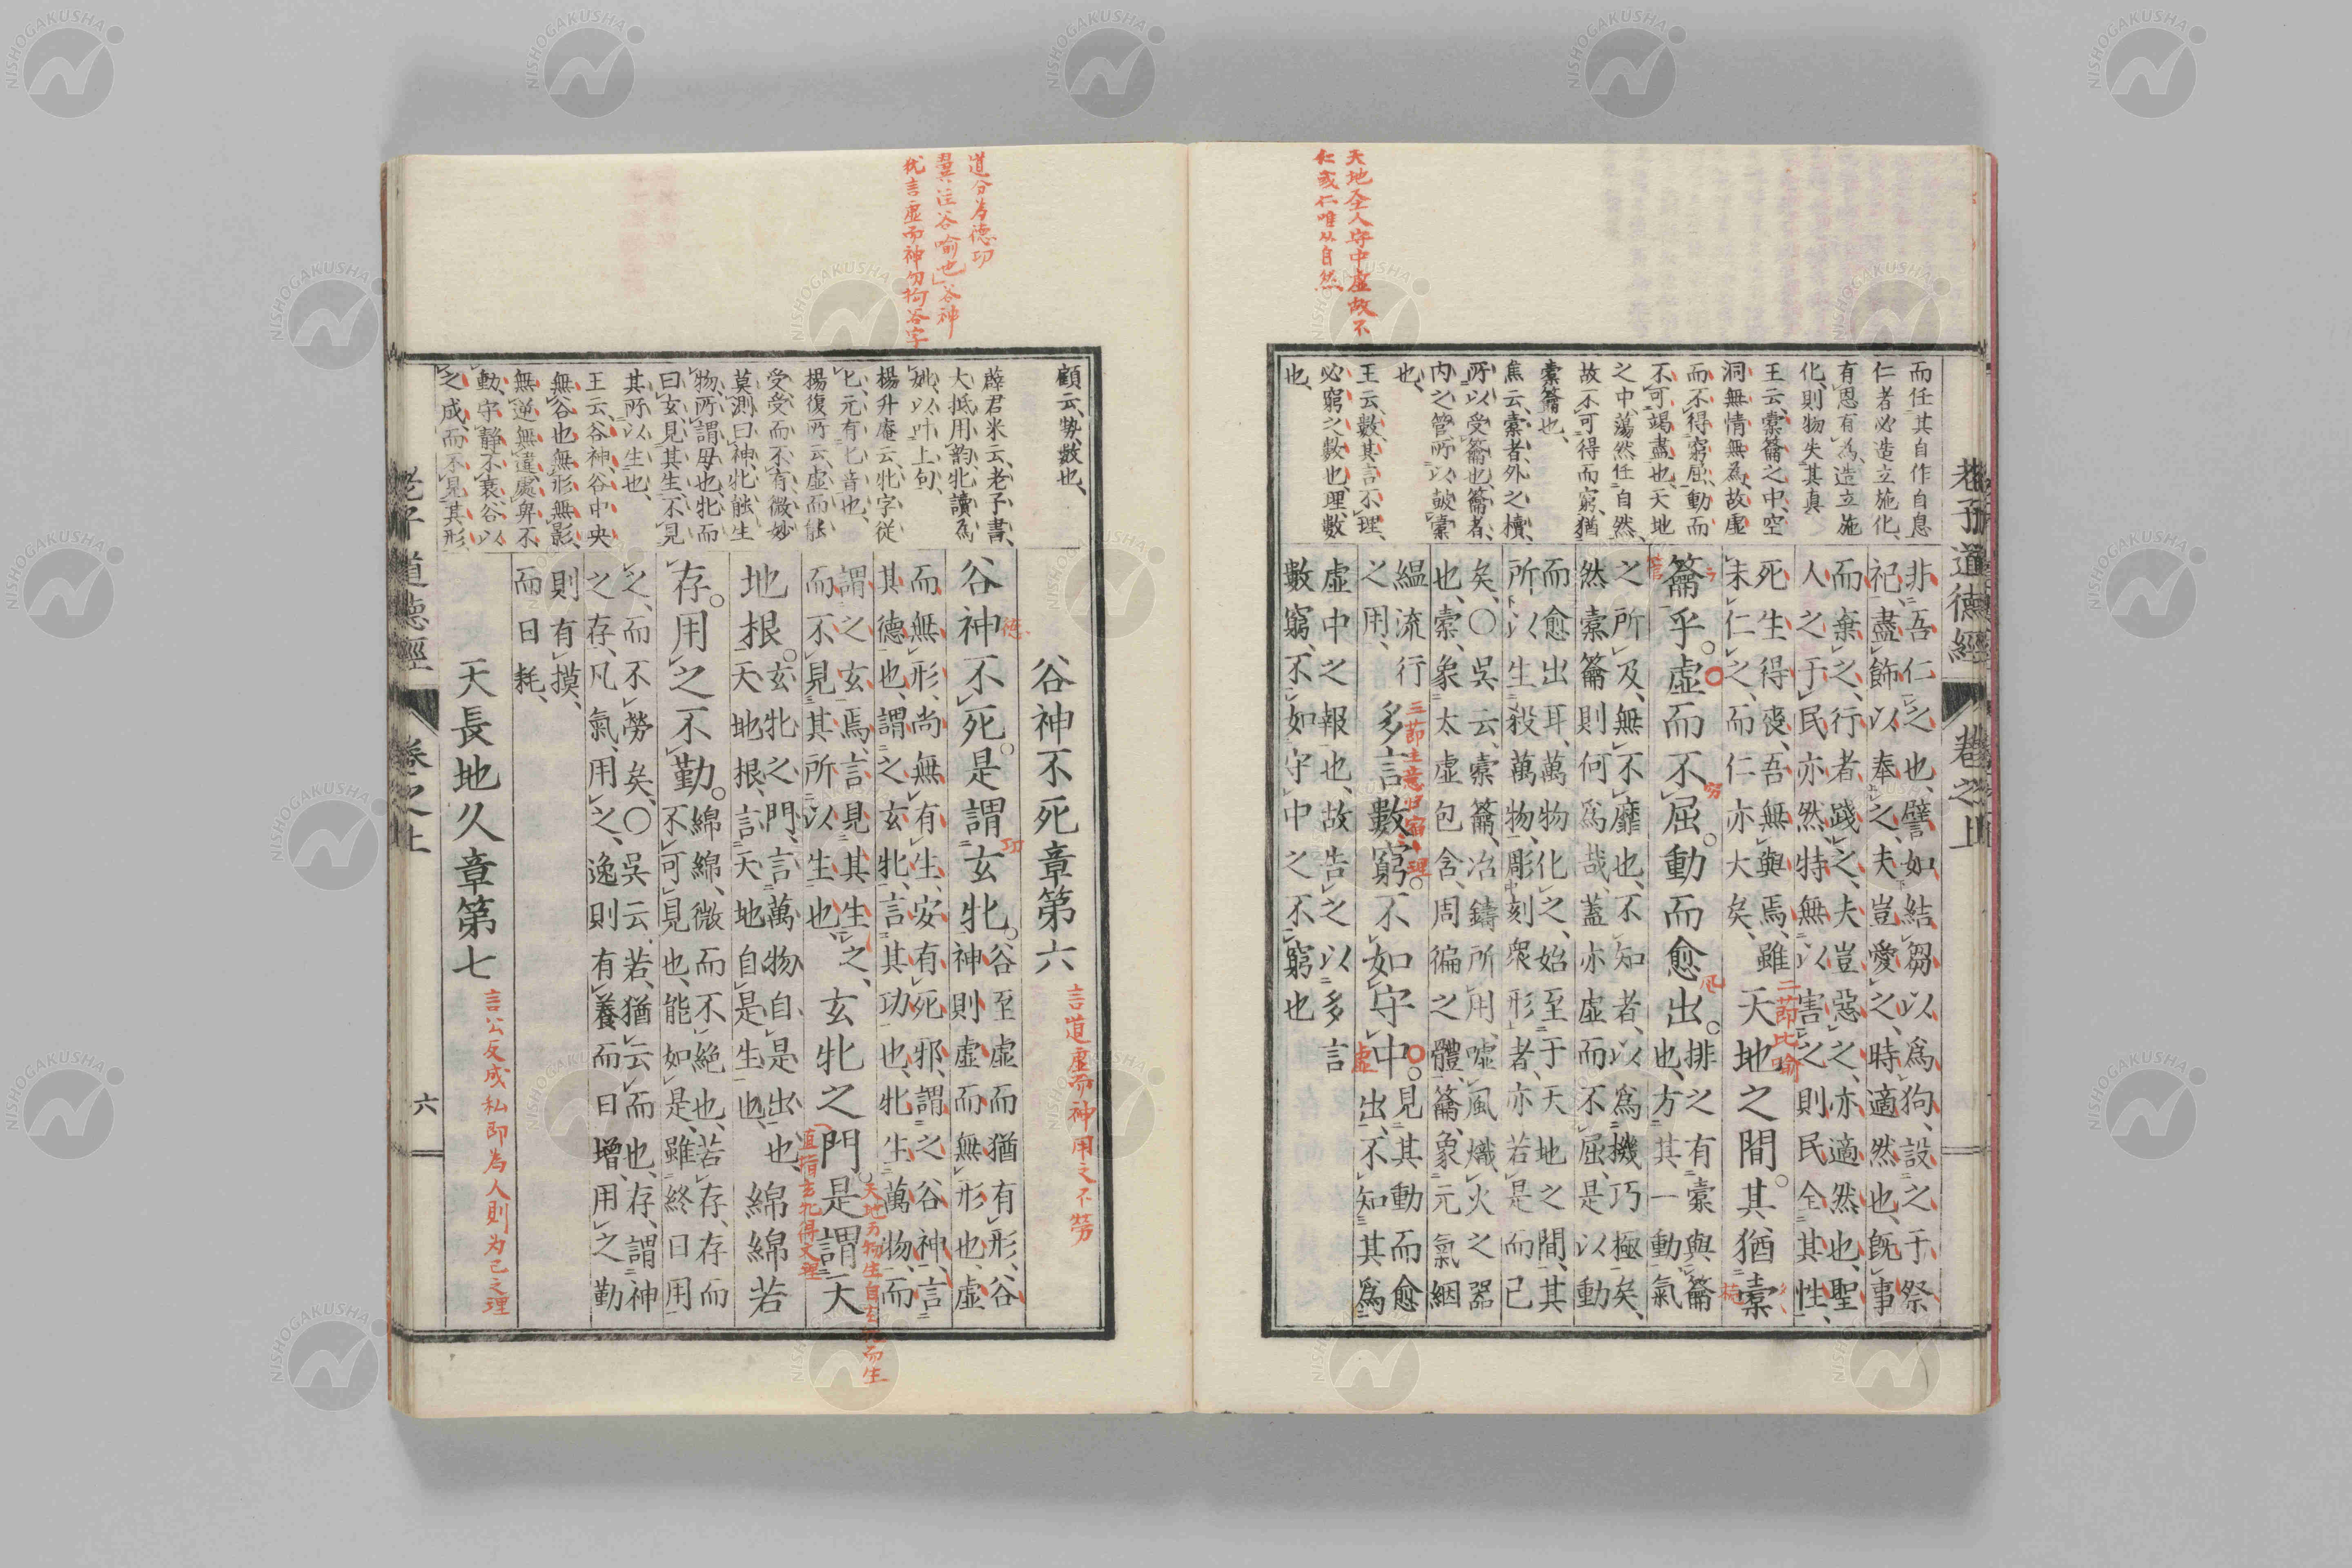 天地圣人守中虛故不
仁或仁唯从自然
老子道德經 卷之上
而任其自作自息
仁者必造立施化、
有恩有為、造立施
化、則物失其真
王云、橐籥之中、空
洞無情無為、故虛
而不得窮屈、動而
不可竭盡也、天地
之中、蕩然任自然、
故不可得而窮、猶
橐籥也、
焦云、橐者、外之櫝、
所以受籥也、籥者、
内之管、所以鼓橐
也、
王云、數、其言不理、
必窮之數也、理、數
也、
非吾仁之也、譬如結芻以爲狗、設之于祭
祀、盡飾以奉之、夫豈愛之、時適然也、既事
而棄之、行者踐之、夫豈惡之、亦適然也、聖
人之于民亦然、特無以害之、則民全其性、
死生得喪、吾無與焉、雖
未仁之、而仁亦大矣、
二節比喻
天地之間。其猶橐
籥乎。虛而不屈。動而愈出。
排之有橐與籥
也、方其一動、氣
之所及、無不靡也、不知者、以爲機巧極矣、
然橐籥則何爲哉、蓋亦虛而不屈、是以動
而愈出耳、萬物化之、始至于天地之間、其
所以生殺萬物、彫刻衆形者、亦若是而已
矣、〇吳云、橐籥、冶鑄所用、噓風熾火之器
也、橐、象太虛包含、周徧之體、籥、象元氣絪
縕流行
之用、
三節主意
多言數窮。不如守中。
虛
見其動而愈
出、不知其爲
虛中之報也、故告之以多言
數窮、不如守中之不窮也
道分為德功
翼注谷喻也谷神
犹言虛而神勿拘谷字
顧云、勢數也、
薛君米云、老子書、
大抵用韵、牝讀爲
姚、以叶上句、
楊升庵云、牝字從
匕、元有匕音也、
楊復所云、虛而能
受、受而不有、微妙
莫測、曰神、牝能生
物、所謂母也、牝而
曰玄、見其生不見
其所以生也、
王云、谷神、谷中央
無谷也、無形無影、
無逆無違、處卑不
動、守靜不衰、谷以
之成、而不見其形、
谷神不死章第六
言道虛而神用之不勞
德
功
谷神不死。是謂玄牝。
谷至虛而猶有形、谷
神則虛而無形也、虛
而無形、尚無有生、安有死邪、謂之谷神、言
其德也、謂之玄牝、言其功也、牝生萬物、而
謂之玄焉、言見其生之、
而不見其所以生也
玄牝之門。是謂天
地根。
天地万物生自玄牝而生
玄牝之門、言萬物自是出也、
天地根、言天地自是生也、
綿綿若
存。用之不勤。
綿綿、微而不絶也、若存、存而
不可見也、能如是、雖終日用
之、而不勞矣、〇吳云、若、猶云而也、存、謂神
之存、凡氣、用之、逸則有養而日增、用之勤
則有損、
而日耗、
天長地久章第七
言公反成私即為人則为己之理
老子道德經 卷之上 六